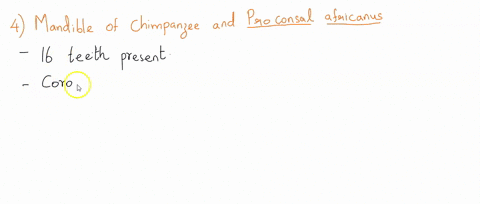 4) Mandible of Chimpanzee and Proconsal africanus
- 16 teeth present.
- Coro